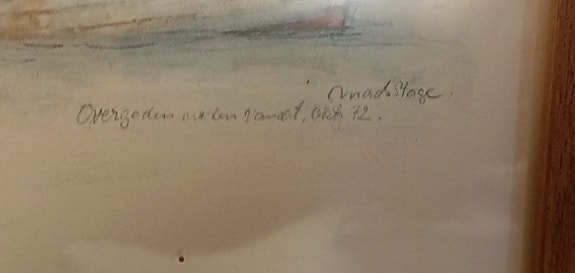 Mads Stage.
Overgaden neden Vandet, Okt 72.